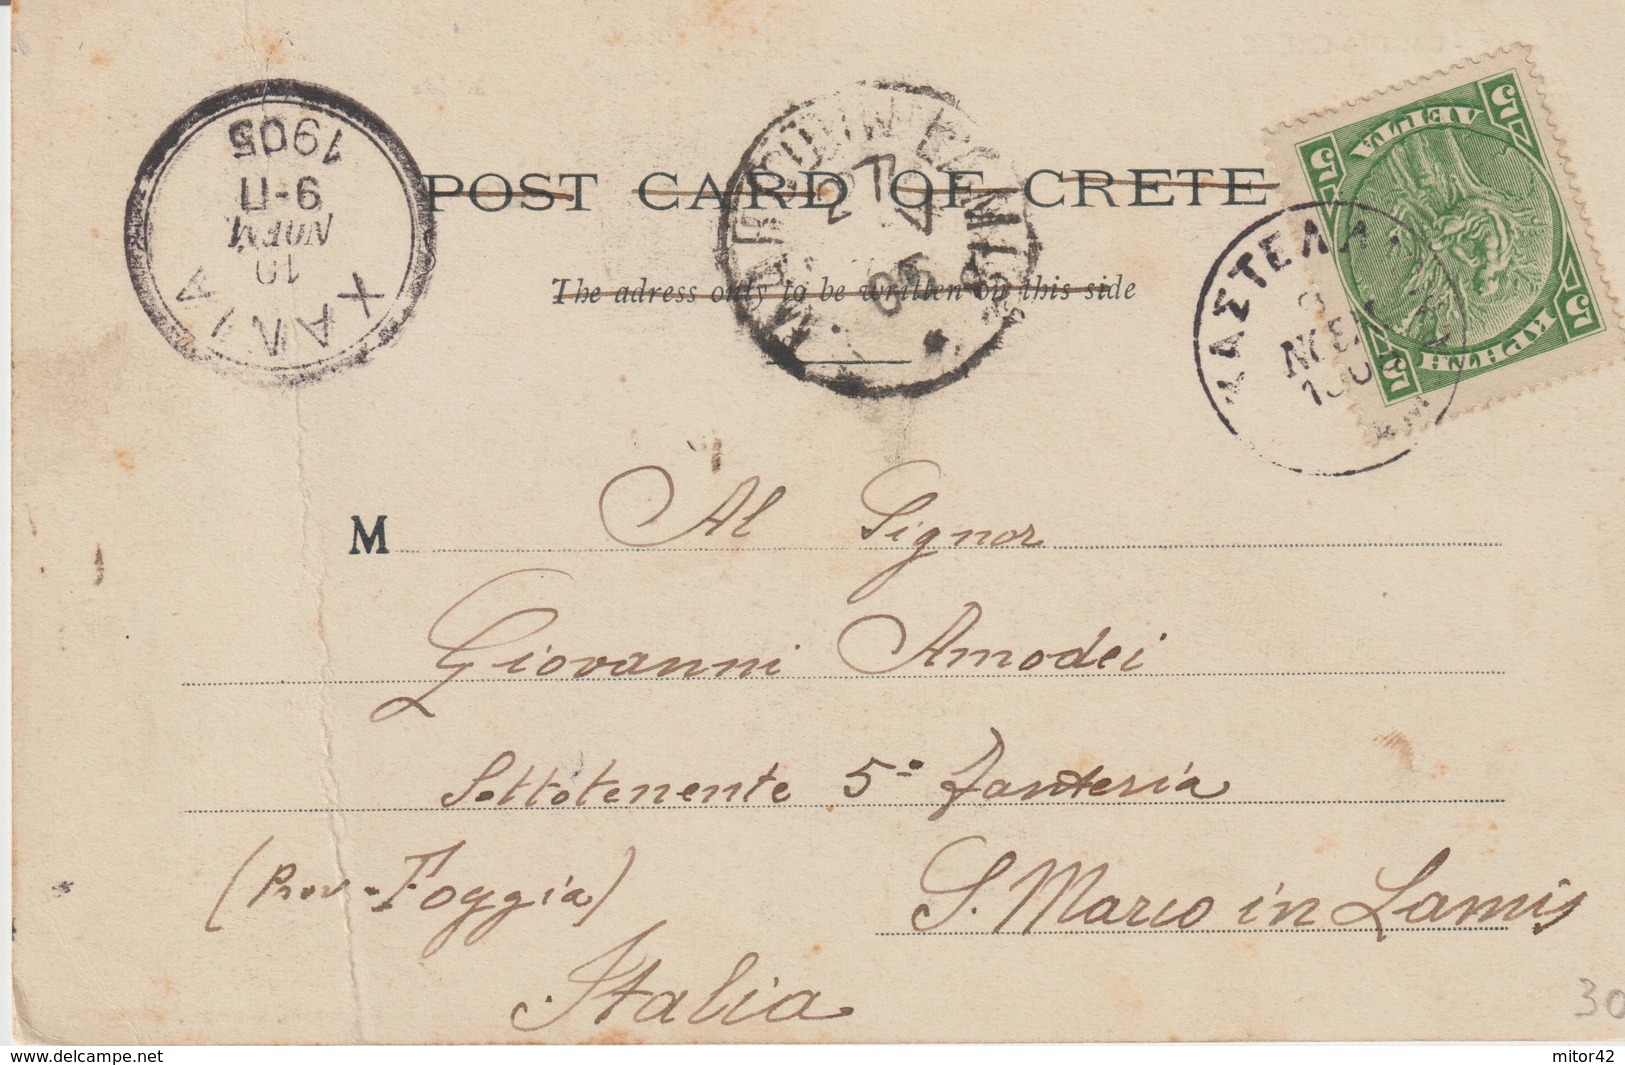 ΧΑΝΙΑ
10
ΝΟΕΜ
9-Π
1905
POST CARD OF CRETE
The adress only to be written on this side
5 ΛΕΠΤΑ 5
5 ΚΡΗΤΗ 5
ΚΑΣΤΕΛΛ
ΝΟΕΜ
M Al Signor
Giovanni Amodei
Sottotenente 5° Fanteria
(Prov. Foggia) S. Marco in Lamis
Italia
30
delcampe.net
mitor42